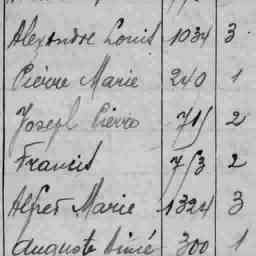 Alexandre Louis 1034 3
Pierre Marie 240 1
Joseph Pierre 715 2
Francis 753 2
Alfred Marie 1324 3
Auguste Aimé 300 1